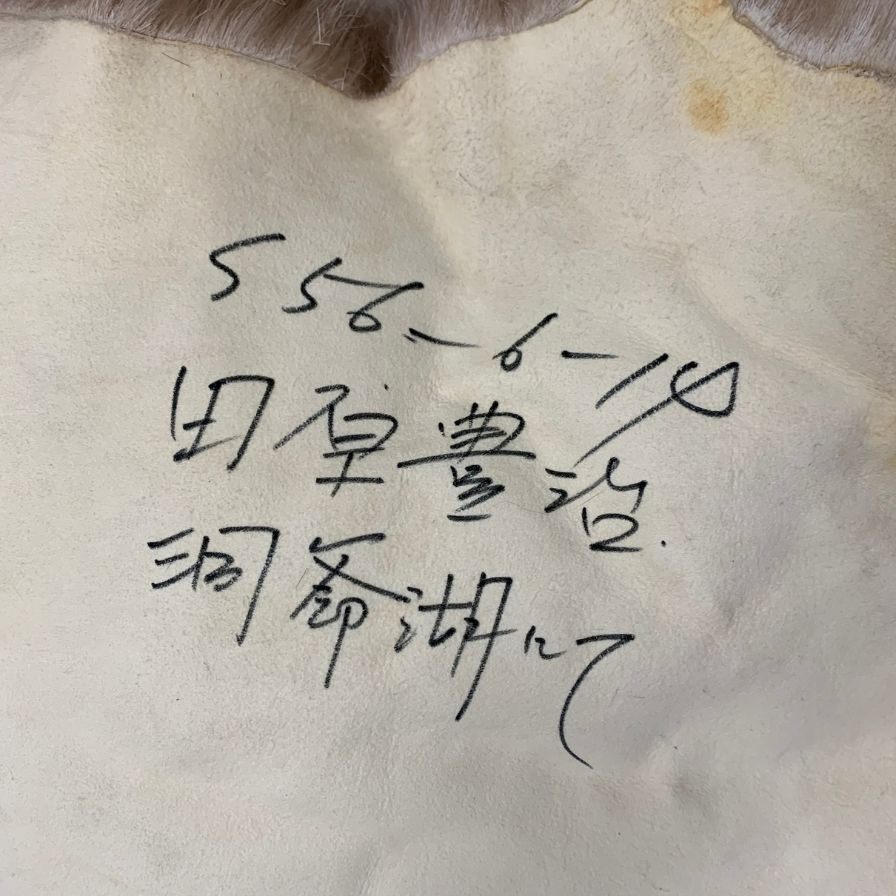 S 56-6-14
田原豊治.
洞爺湖にて